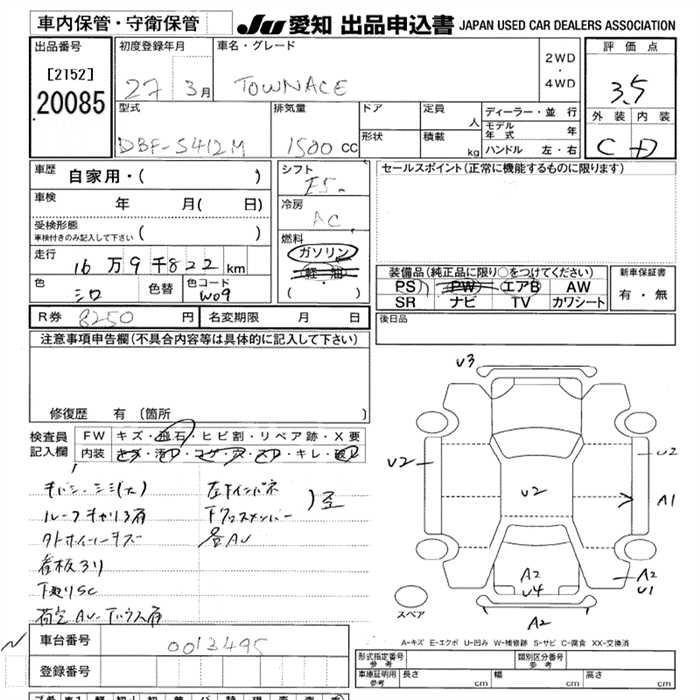 車内保管・守衛保管
JU 愛知 出品申込書 JAPAN USED CAR DEALERS ASSOCIATION
出品番号
[2152]
20085
初度登録年月
27 3月
車名・グレード
TOWNACE
2WD
・
4WD
評価点
3.5
外装 内装
C D
型式
DBF-S412M
排気量
1500 cc
ドア
形状
定員 人
積載 kg
ディーラー・並行
モデル年式 年
ハンドル 左・右
車歴 自家用・( )
車検 年 月( 日)
受検形態
車検付きのみ記入して下さい ( )
走行
16万9千822km
色 シロ
色替
色コード W09
シフト
F5
冷房
AC
燃料
ガソリン
軽油
・
( )
セールスポイント(正常に機能するものに限ります)
装備品(純正品に限り○をつけてください)
PS PW エアB AW
SR ナビ TV カワシート
新車保証書
有・無
R券 8250 円
名変期限 月 日
後日品
注意事項申告欄(不具合内容等は具体的に記入して下さい)
修復歴 有 (箇所 )
検査員記入欄
FW キズ・飛石・ヒビ割・リペア跡・X要
内装 キズ・汚レ・コゲ・穴・スレ・キレ・破レ
ルーフキャリア有
看板ヨリ
下廻りSC
V3
V2
V2
V2
A1
A2
V4
A2
A2
V1
スペア
A-キズ E-エクボ U-凹み W-補修跡 S-サビ C-腐食 XX-交換済
車台番号 0013495
登録番号
形式指定番号
参考
類別区分番号
参考
車庫証明用
参考
長さ cm
幅 cm
高さ cm